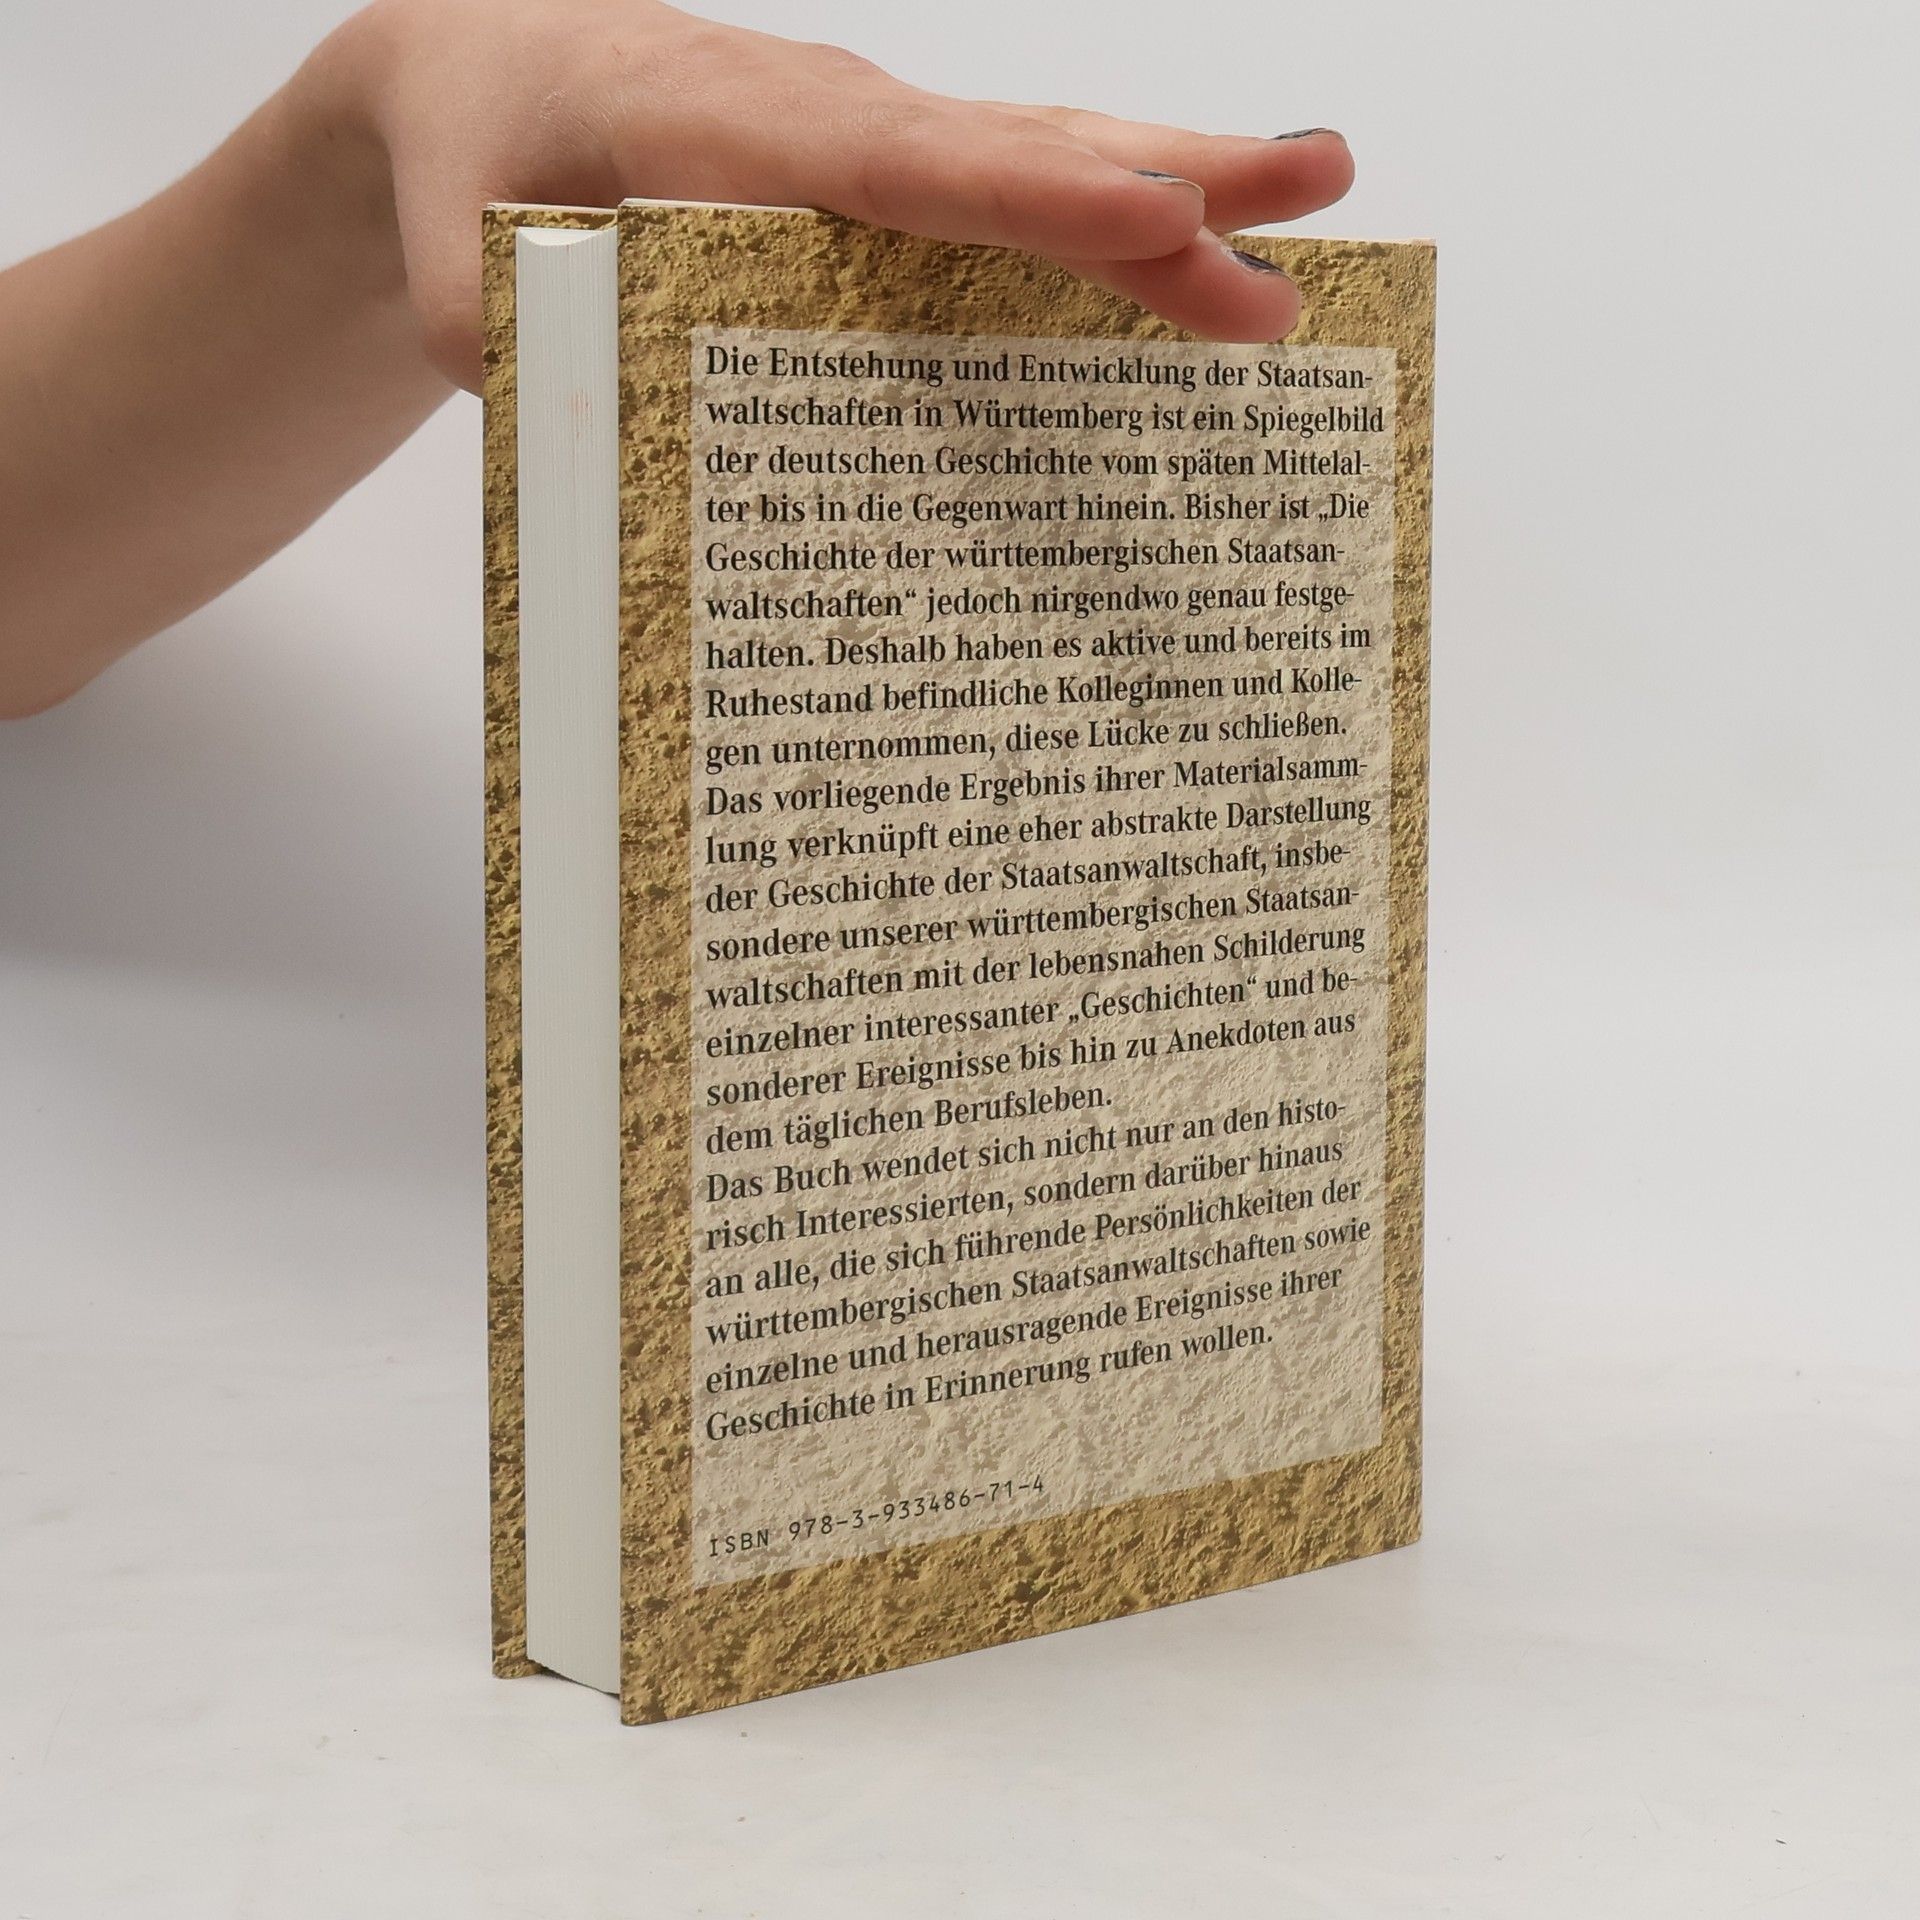 Die Entstehung und Entwicklung der Staatsan-
waltschaften in Württemberg ist ein Spiegelbild
der deutschen Geschichte vom späten Mittelal-
ter bis in die Gegenwart hinein. Bisher ist „Die
Geschichte der württembergischen Staatsan-
waltschaften“ jedoch nirgendwo genau festge-
halten. Deshalb haben es aktive und bereits im
Ruhestand befindliche Kolleginnen und Kolle-
gen unternommen, diese Lücke zu schließen.
Das vorliegende Ergebnis ihrer Materialsamm-
lung verknüpft eine eher abstrakte Darstellung
der Geschichte der Staatsanwaltschaft, insbe-
sondere unserer württembergischen Staatsan-
waltschaften mit der lebensnahen Schilderung
einzelner interessanter „Geschichten“ und be-
sonderer Ereignisse bis hin zu Anekdoten aus
dem täglichen Berufsleben.
Das Buch wendet sich nicht nur an den histo-
risch Interessierten, sondern darüber hinaus
an alle, die sich führende Persönlichkeiten der
württembergischen Staatsanwaltschaften sowie
einzelne und herausragende Ereignisse ihrer
Geschichte in Erinnerung rufen wollen.
ISBN 978-3-933486-71-4